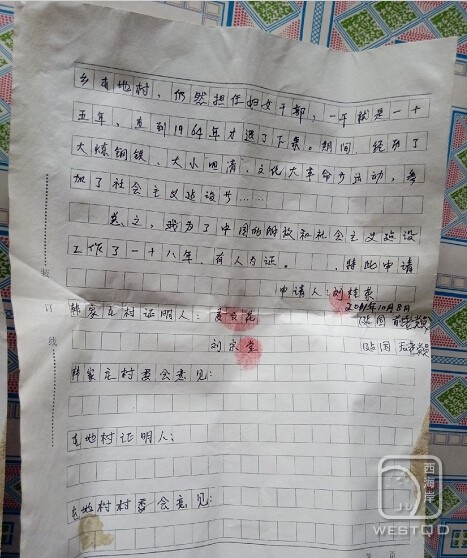 乡东地村，仍然担任妇女干部，一干就是一十
五年，直到1964年才退了下来。期间，经历了
大炼钢铁、大小四清、文化大革命多运动，参
加了社会主义建设少……
总之，我为了中国的解放和社会主义建设
工作了一十八年，有人为证。特此申请
申请人：刘桂荣
2011年10月8日
韩家庄村证明人：
刘宗堂
韩家庄村委会意见：
东地村证明人：
东地村村委会意见：
装
订
线
西海岸
WESTQD